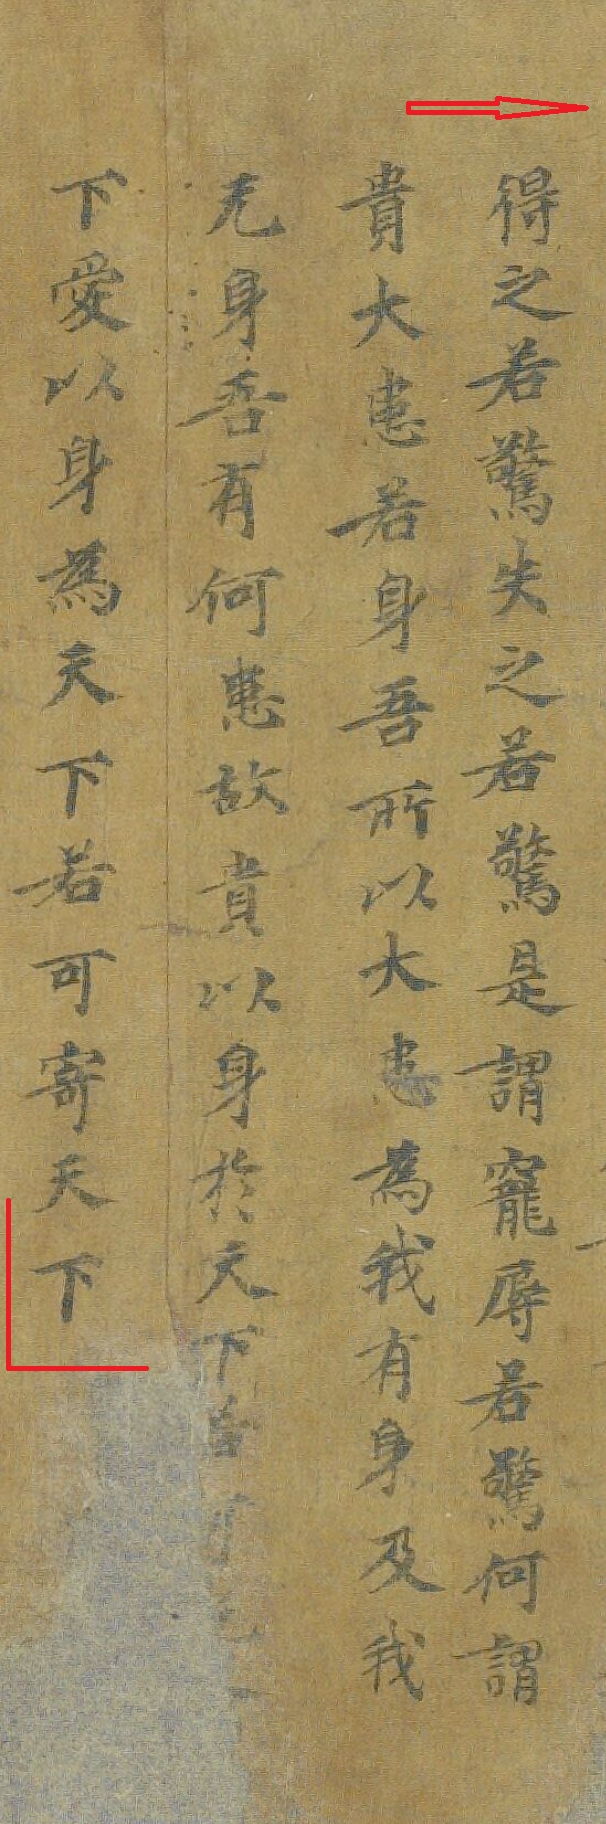 得之若驚失之若驚是謂寵辱若驚何謂
貴大患若身吾所以大患為我有身及我
无身吾有何患故貴以身於天下若可
下愛以身為天下若可寄天下